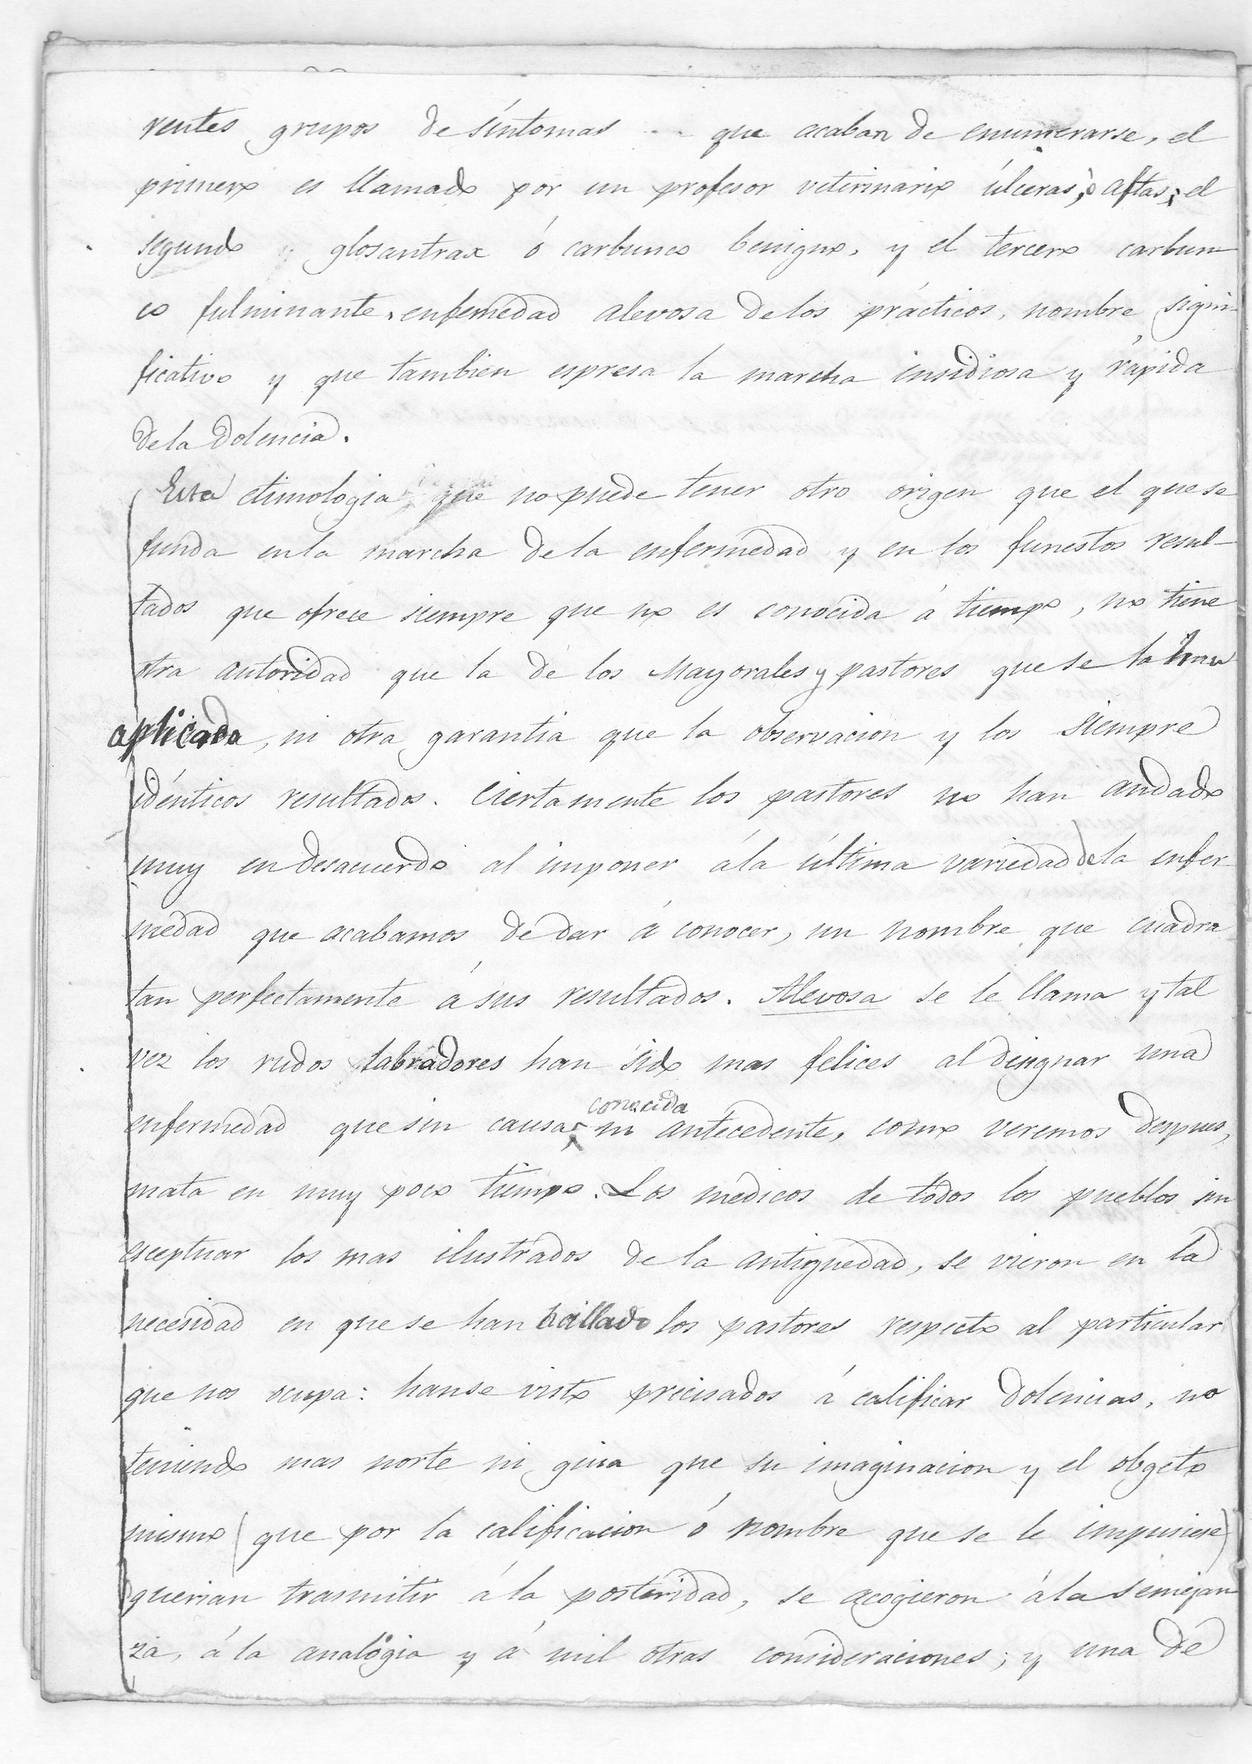 rentes grupos de síntomas que acaban de enumerarse, el
primero es llamado por un profesor veterinario úlceras, ó aftas; el
segundo glosantrax ó carbunco benigno, y el tercero carbun
co fulminante, enfermedad alevosa de los prácticos, nombre signi-
ficativo y que tambien espresa la marcha insidiosa y rápida
de la dolencia.
Esta etimologia que no puede tener otro origen que el que se
funda en la marcha de la enfermedad y en los funestos resul-
tados que ofrece siempre que no es conocida á tiempo, no tiene
otra autoridad que la de los Mayorales y pastores que se la han
aplicado, ni otra garantia que la observacion y los siempre
idénticos resultados. Ciertamente los pastores no han andado
muy en desacuerdo al imponer á la última variedad de la enfer-
medad que acabamos de dar á conocer, un nombre que cuadra
tan perfectamente á sus resultados. Alevosa se le llama y tal
vez los rudos labradores han sido mas felices al designar una
enfermedad que sin causa conocida ni antecedente, como veremos despues,
mata en muy poco tiempo. Los médicos de todos los pueblos sin
esceptuar los mas ilustrados de la antiguedad, se vieron en la
necesidad en que se han hallado los pastores respecto al particular
que nos ocupa: hanse visto precisados á calificar dolencias, no
teniendo mas norte ni guia que su imaginacion y el obgeto
mismo (que por la calificacion ó nombre que se le impusiese)
querian trasmitir á la posteridad, se acogieron á la semejan
za, á la analogia y á mil otras consideraciones; y una de